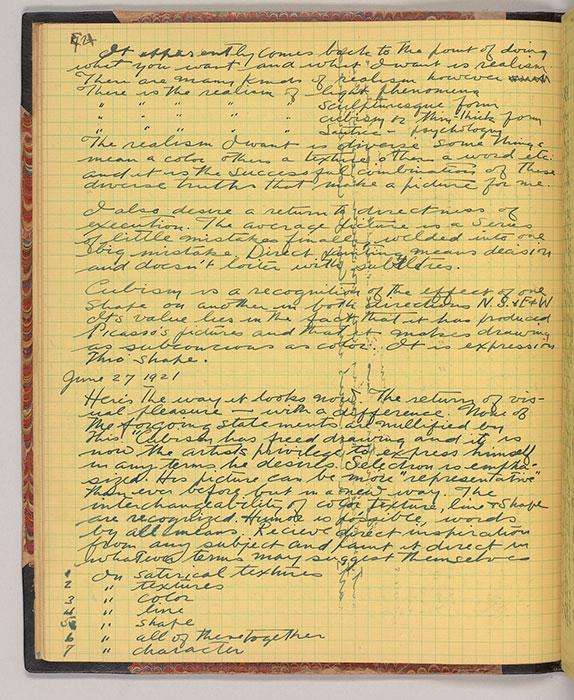 It apparently comes back to the point of doing
what you want and what I want is realism
There are many kinds of realism however
There is the realism of light phenomena
" " " " " sculpturesque form
" " " " " cubism or thin-thick form
" " " " " satire - psychology
The realism I want is diverse some things
mean a color others a texture others a word etc.
and it is the successful combination of these
diverse truths that make a picture for me.
I also desire a return to directness of
execution. The average picture is a series
of little mistakes finally welded into one
big mistake. Direct painting means decision
and doesn't loiter with subtleties.
Cubism is a recognition of the effect of one
shape on another in both directions N.S. & E & W
Its value lies in the fact that it has produced
Picasso's pictures and that it makes drawing
as subconcious as color. It is expression
thro' shape.
June 27 1921
Here's the way it looks now. The return of vis-
ual pleasure — with a difference. None of
the forgoing statements are nullified by
this. Cubism has freed drawing and it is
now the artists privilege to express himself
in any terms he desires. Selection is empha-
sized. His picture can be more "representative"
than ever before but in a new way. The
interchangeability of color texture, line & shape
are recognized. Humor is possible, words
by all means. Recieve direct inspiration
from any subject and paint it direct in
whatever terms may suggest themselves
1 In satirical textures
2 " textures
3 " color
4 " line
5 " shape
6 " all of these together
7 " character